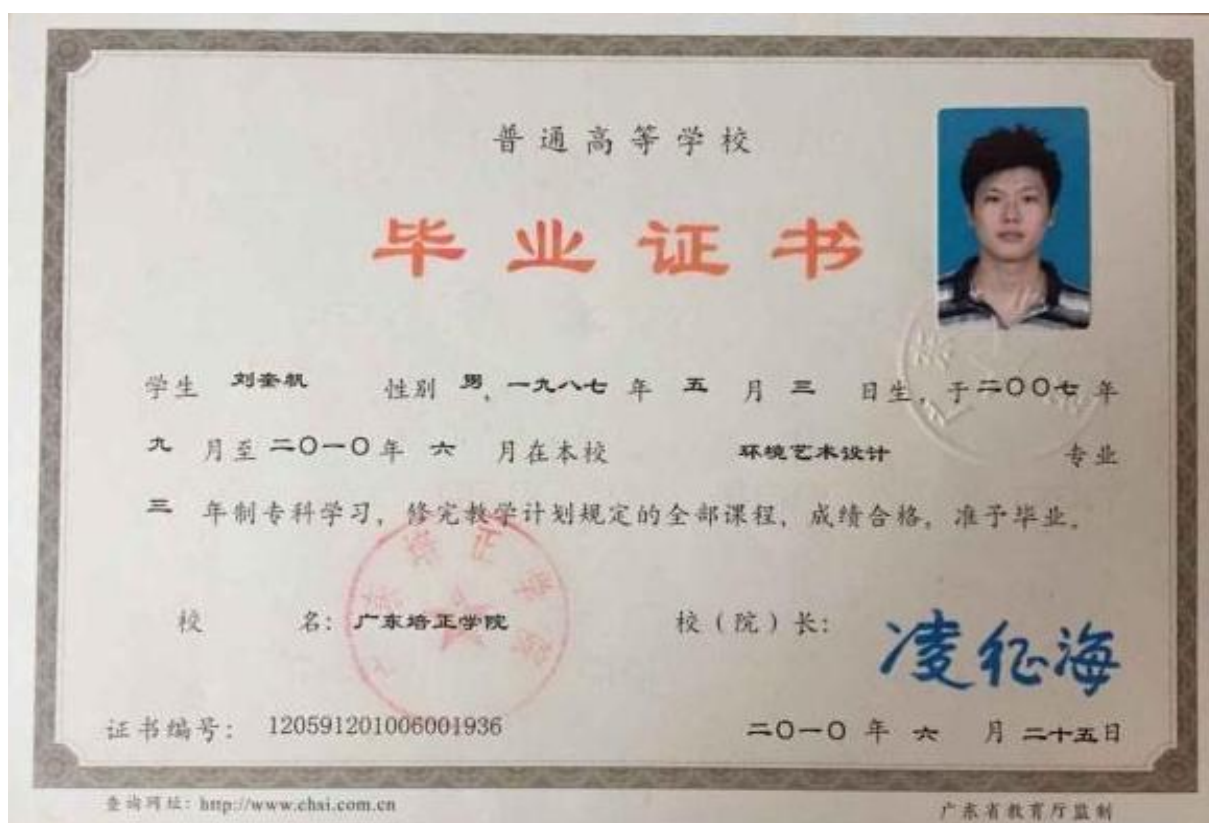 普通高等学校
毕业证书
学生 刘奎帆 性别 男，一九八七 年 五 月 三 日生，于二〇〇七 年
九 月至 二〇一〇 年 六 月在本校 环境艺术设计 专业
三 年制专科学习，修完教学计划规定的全部课程，成绩合格，准予毕业。
校 名：广东培正学院 校（院）长：
凌征海
证书编号： 120591201006001936 二〇一〇 年 六 月 二十五日
查询网址：http://www.chsi.com.cn 广东省教育厅监制